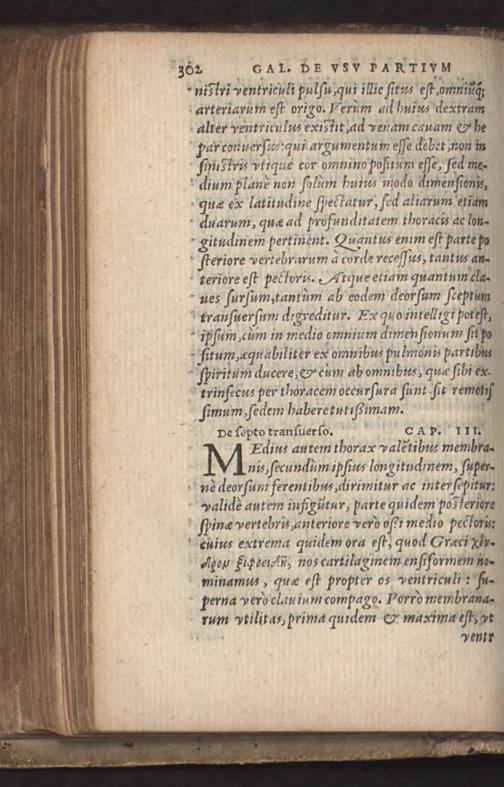 302 GAL. DE VSV PARTIVM
niſtri ventriculi pulſu, qui illic ſitus eſt, omniūq;
arteriarum eſt origo. Verùm ad huius dextram
alter ventriculus exiſtit, ad venam cauam & he
par conuerſus: qui argumentum eſſe debet, non in
ſiniſtris vtique cor omnino poſitum eſſe, ſed me-
dium planè non ſolùm huius modo dimenſionis,
quæ ex latitudine ſpectatur, ſed aliarum etiam
duarum, quæ ad profunditatem thoracis ac lon-
gitudinem pertinent. Quantus enim eſt parte po
ſteriore vertebrarum à corde receſſus, tantus an-
teriore eſt pectoris. Atque etiam quantum cla-
ues ſurſum, tantùm ab eodem deorſum ſceptum
tranſuerſum digreditur. Ex quo intelligi poteſt,
ipſum, cùm in medio omnium dimenſionum ſit po
ſitum, æquabiliter ex omnibus pulmonis partibus
ſpiritum ducere, & cùm ab omnibus, quæ ſibi ex-
trinſecus per thoracem occurſura ſunt, ſit remotiſ
ſimum, ſedem habere tutißimam.
De ſepto tranſuerſo. CAP. III.
MEdius autem thorax valētibus membra-
nis, ſecundùm ipſius longitudinem, ſuper-
nè deorſum ferentibus, dirimitur ac interſepitur:
validè autem infigūtur, parte quidem poſteriore
ſpinæ vertebris, anteriore verò oſsi medio pectoris:
cuius extrema quidem ora eſt, quod Græci χόν-
δρον ξιφοειδῆ, nos cartilaginem enſiformem no-
minamus, quæ eſt propter os ventriculi: ſu-
perna verò clauium compago. Porrò membrana-
rum vtilitas, prima quidem & maxima eſt, vt
ventr